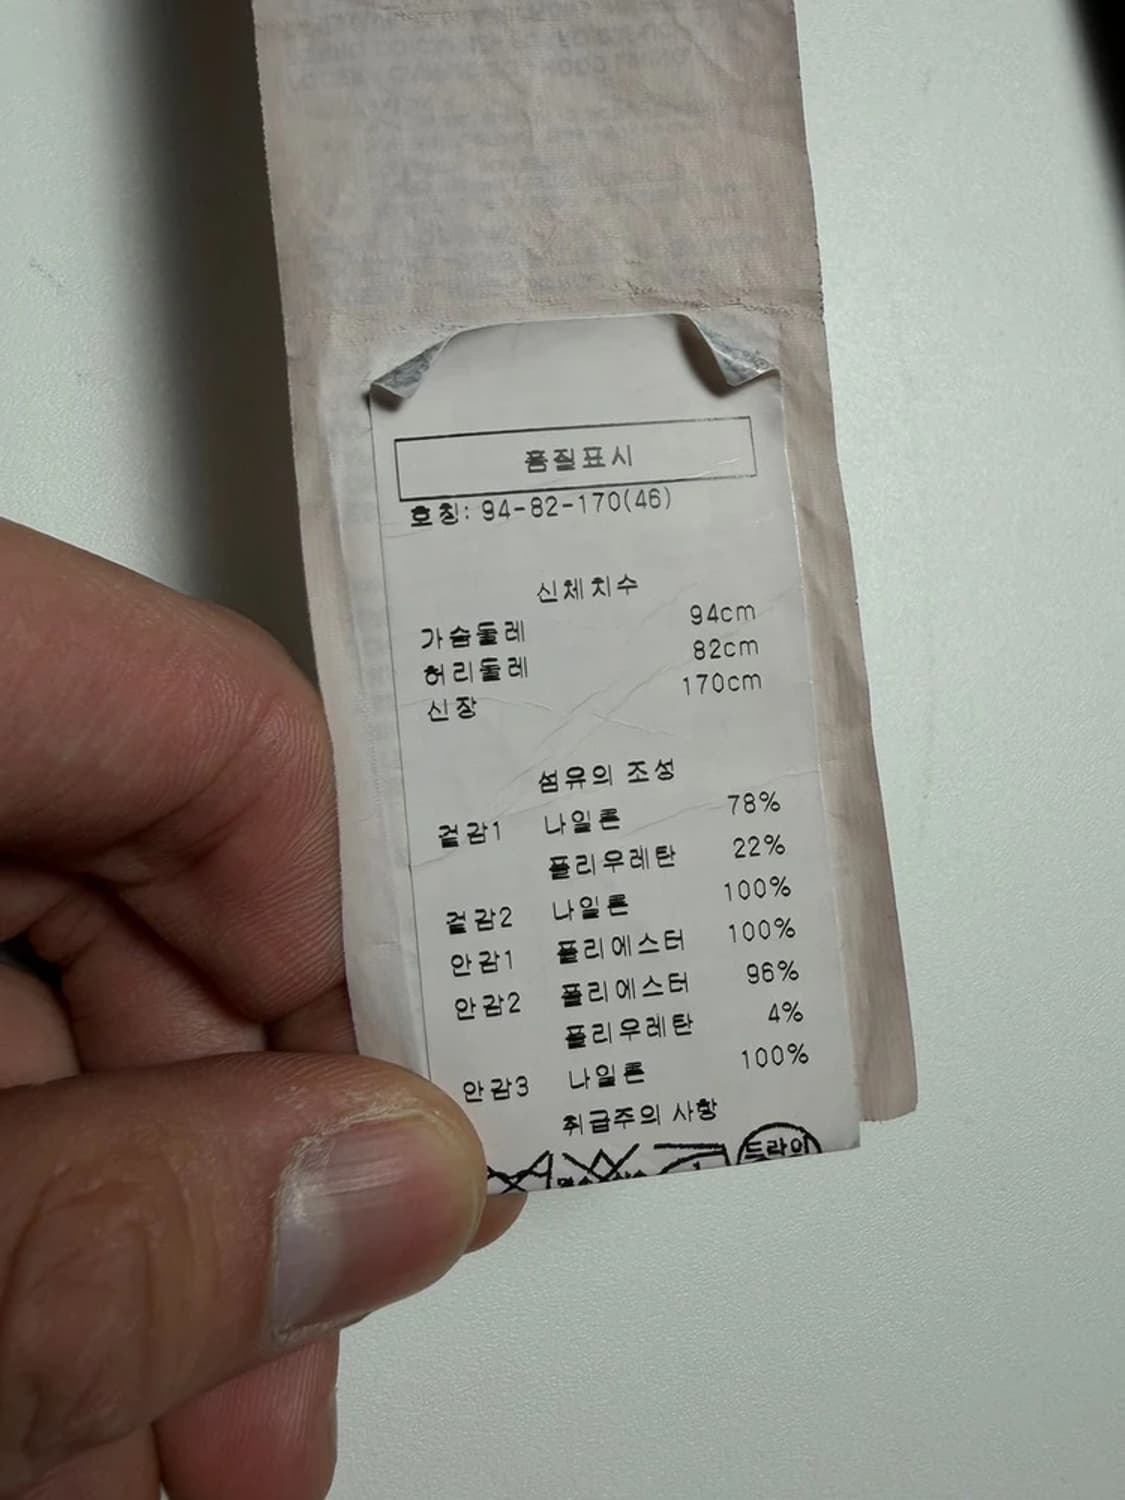 품질표시
호칭: 94-82-170(46)
신체치수
가슴둘레 94cm
허리둘레 82cm
신장 170cm
섬유의 조성
겉감1 나일론 78%
폴리우레탄 22%
겉감2 나일론 100%
안감1 폴리에스터 100%
안감2 폴리에스터 96%
폴리우레탄 4%
안감3 나일론 100%
취급주의 사항
드라이